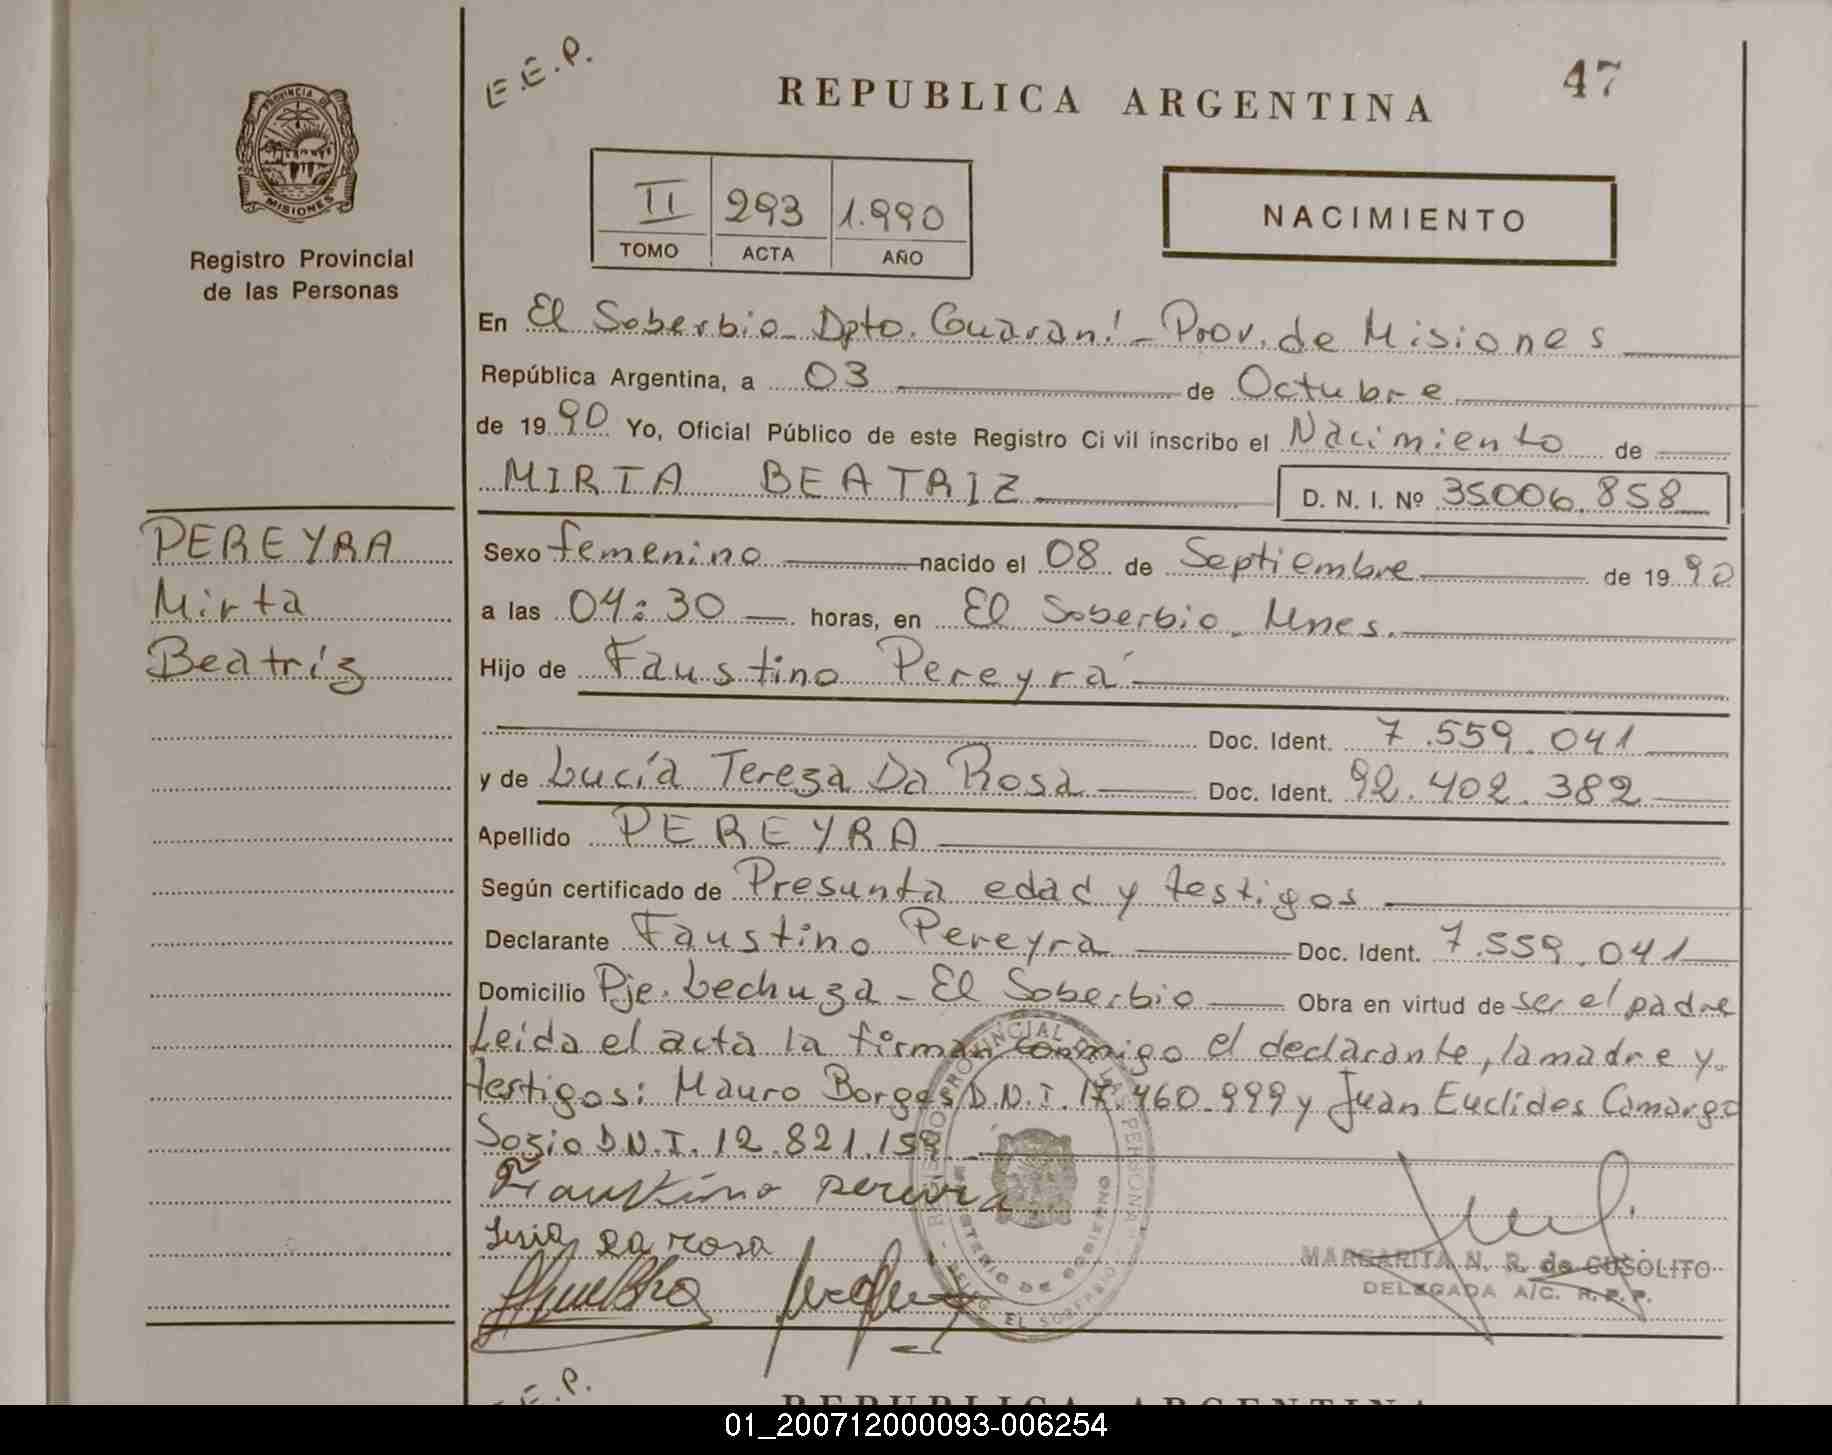 E.E.P.
REPUBLICA ARGENTINA
47
PROVINCIA DE
MISIONES
Registro Provincial
de las Personas
II 293 1.990
TOMO ACTA AÑO
NACIMIENTO
En El Soberbio - Dpto. Guaraní - Prov. de Misiones
República Argentina, a 03 de Octubre
de 19 90 Yo, Oficial Público de este Registro Ci vil inscribo el Nacimiento de
MIRTA BEATRIZ D. N. I. Nº 35.006.858
PEREYRA
Mirta
Beatríz
Sexo femenino nacido el 08 de Septiembre de 19 90
a las 04:30 horas, en El Soberbio - Mnes.
Hijo de Faustino Pereyra
Doc. Ident. 7.559.041
y de Lucía Tereza Da Rosa Doc. Ident. 92.402.382
Apellido PEREYRA
Según certificado de Presunta edad y testigos
Declarante Faustino Pereyra Doc. Ident. 7.559.041
Domicilio Pje. Lechuza - El Soberbio Obra en virtud de ser el padre
Leída el acta la firman conmigo el declarante, la madre y
testigos: Mauro Borges D.N.I. 17.460.999 y Juan Euclides Camargo
Sozio D.N.I. 12.821.159.
Faustino Pereyra
Lusia da rosa
REGISTRO PROVINCIAL DE LAS PERSONAS
MINISTERIO DE GOBIERNO
DELEG. EL SOBERBIO
MARGARITA N. R. de CUSOLITO
DELEGADA A/C. R.P.P.
E.E.P.
REPUBLICA ARGENTINA
01_200712000093-006254